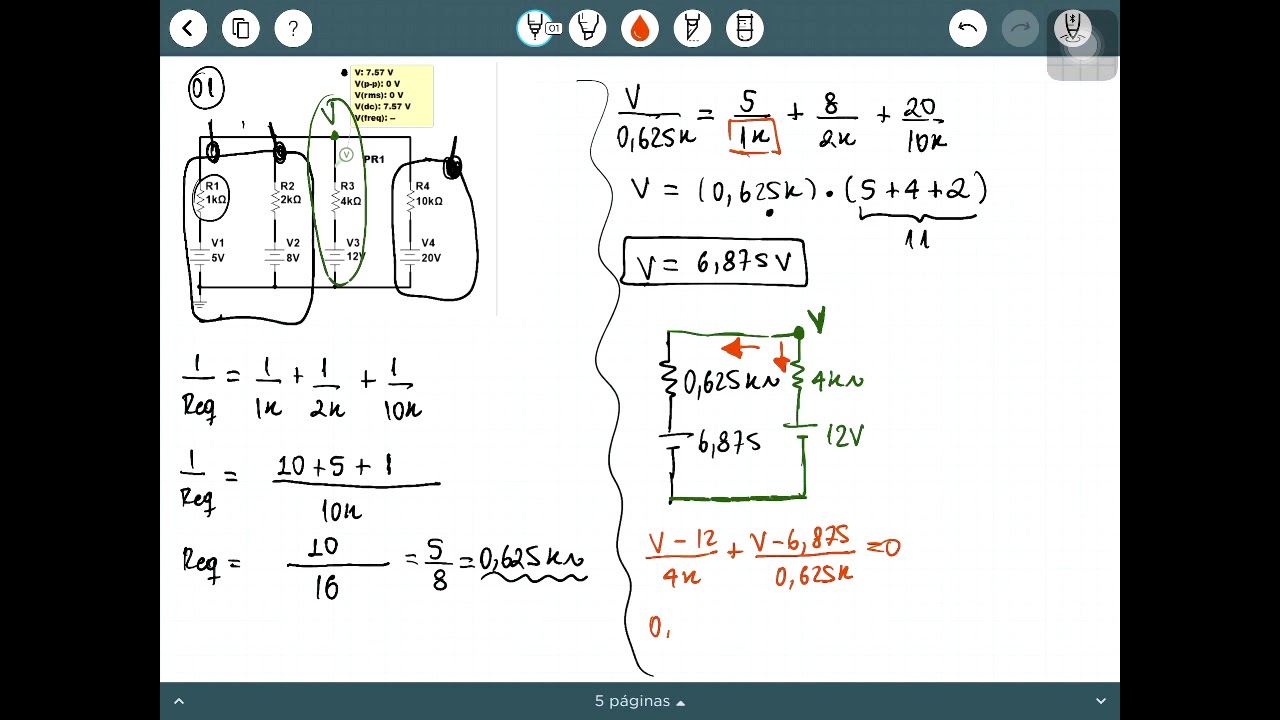 01
?
01
V: 7.57 V
V(p-p): 0 V
V(rms): 0 V
V(dc): 7.57 V
V(freq): --
V
V
PR1
R1
1kΩ
R2
2kΩ
R3
4kΩ
R4
10kΩ
V1
5V
V2
8V
V3
12V
V4
20V
1/Req = 1/1k + 1/2k + 1/10k
1/Req = 10+5+1/10k
Req = 10/16 = 5/8 = 0,625kΩ
V/0,625k = 5/1k + 8/2k + 20/10k
V = (0,625k) • (5+4+2)
11
V = 6,875V
V
0,625kΩ
4kΩ
6,875
12V
V-12/4k + V-6,875/0,625k =0
0,
5 páginas